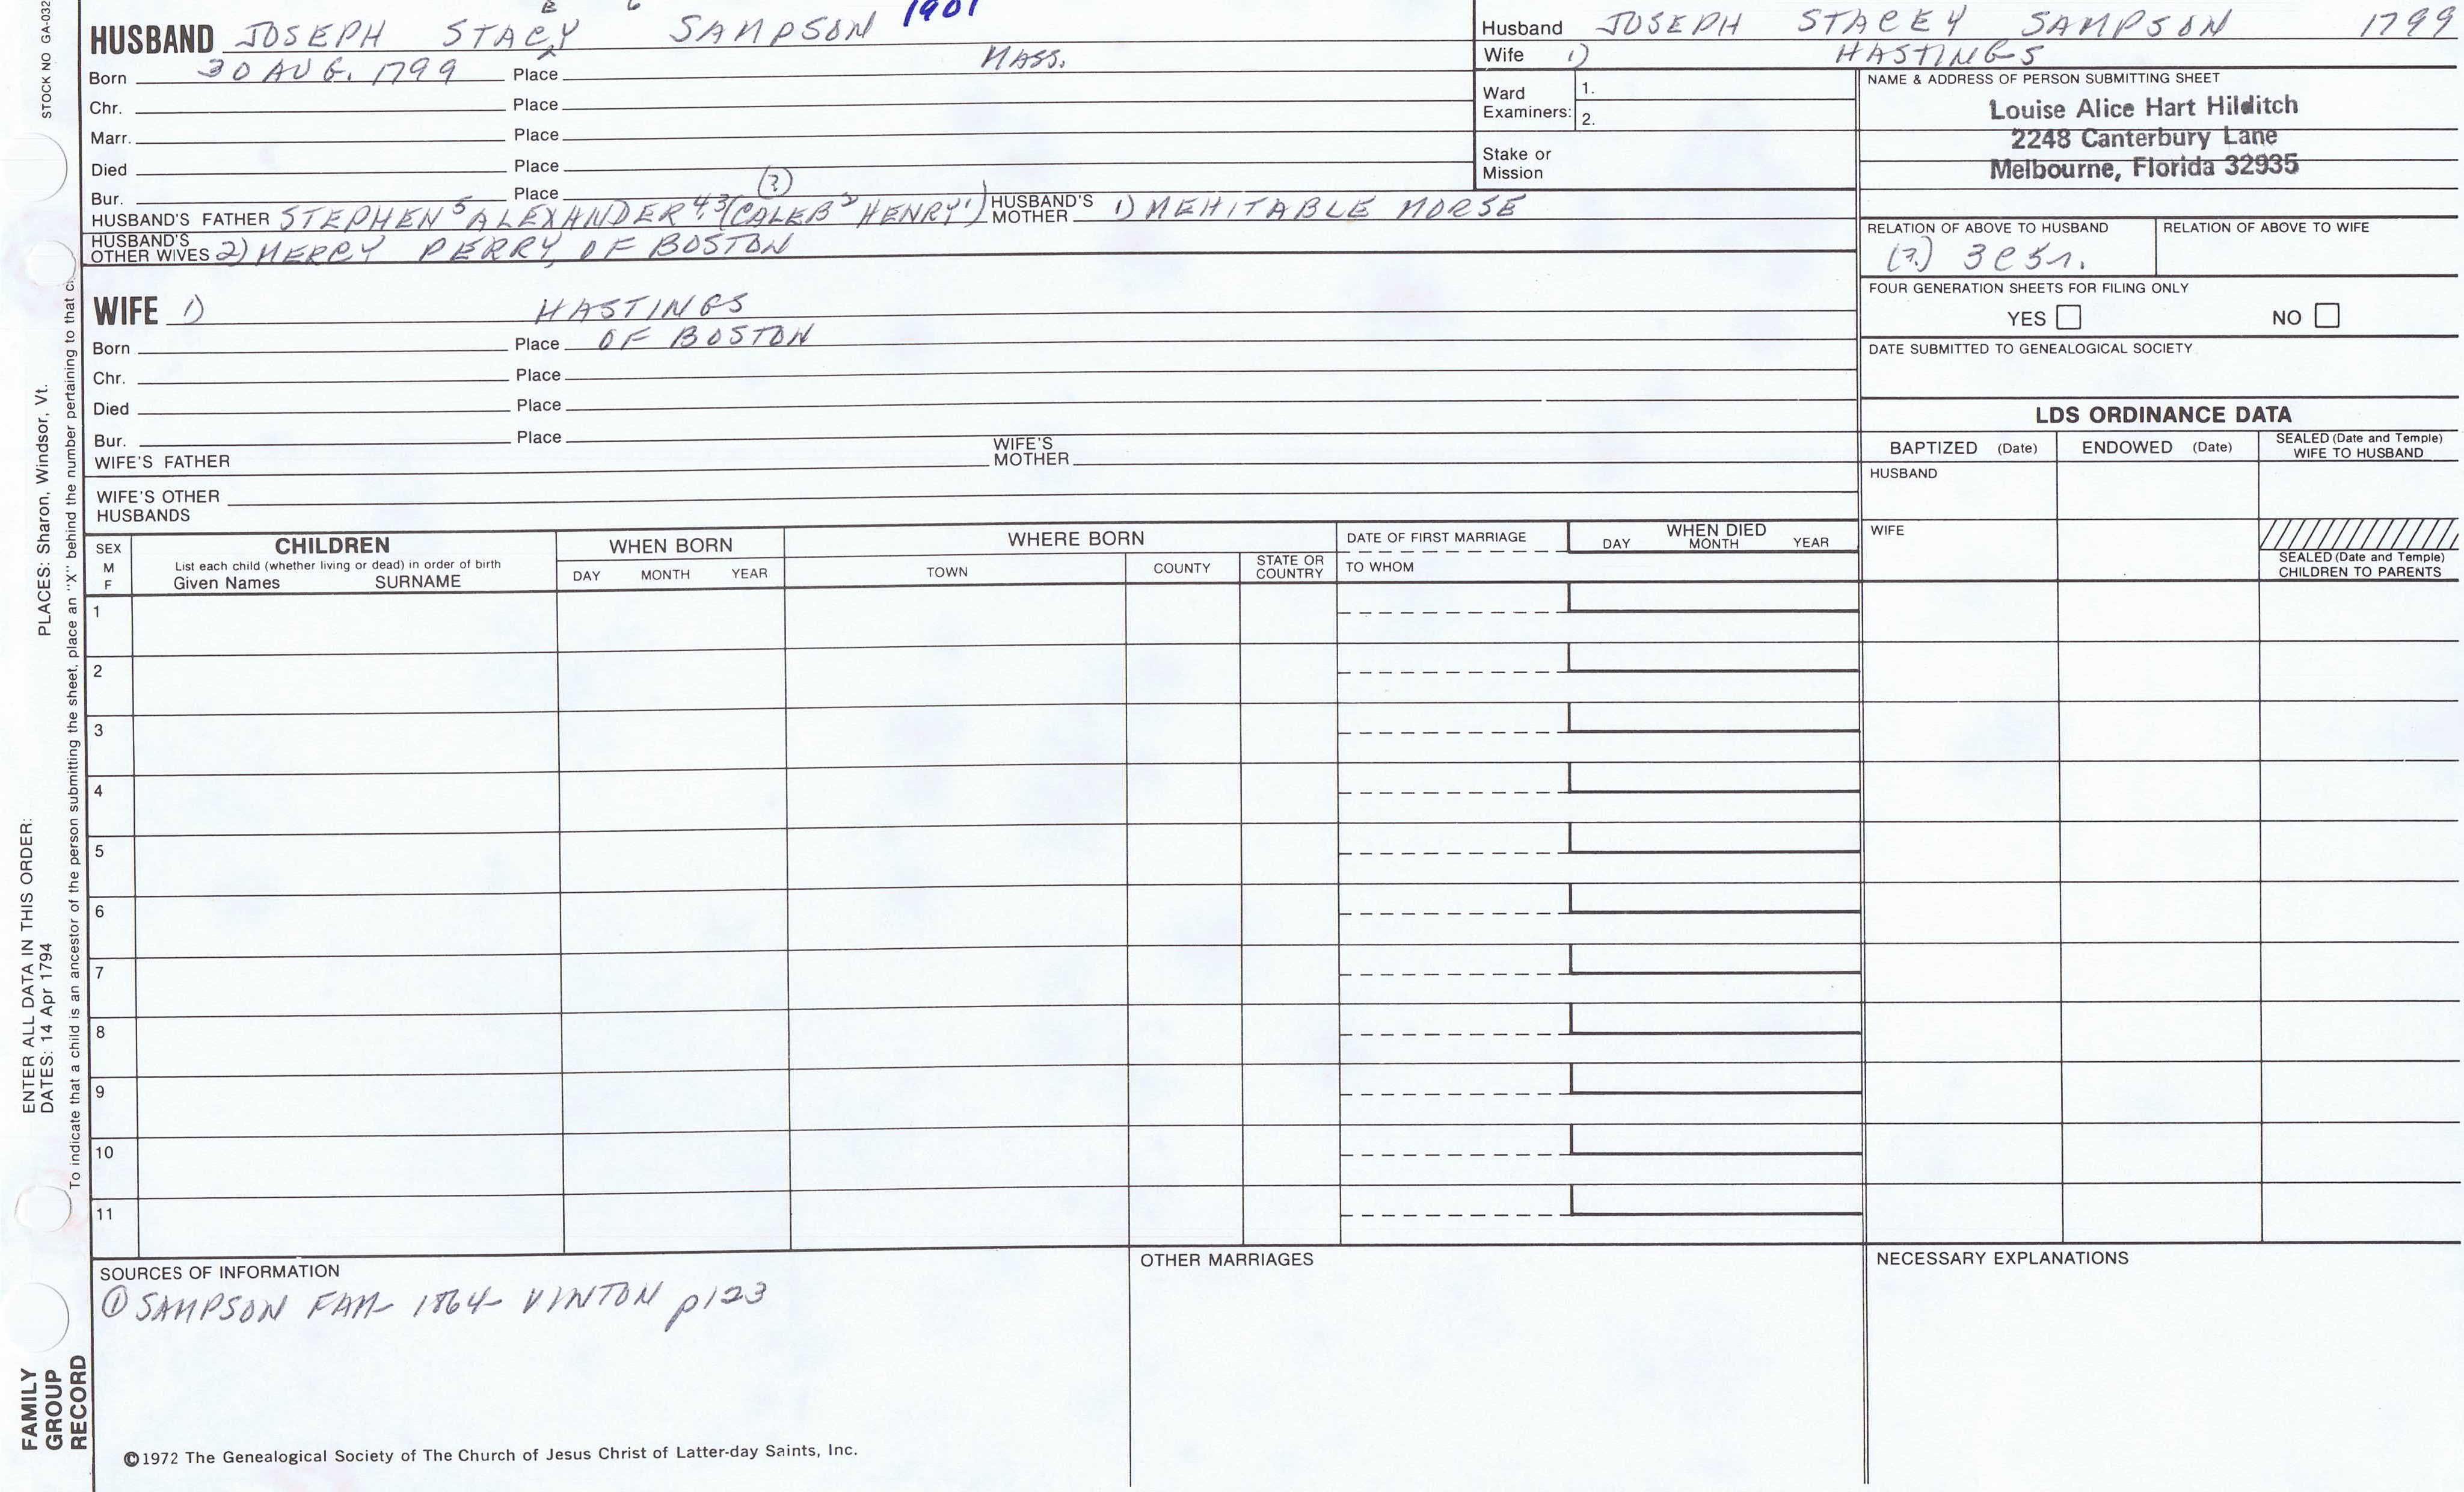 STOCK NO GA-032
PLACES: Sharon, Windsor, Vt.
ENTER ALL DATA IN THIS ORDER:
DATES: 14 Apr 1794
To indicate that a child is an ancestor of the person submitting the sheet, place an "X" behind the number pertaining to that
FAMILY
GROUP
RECORD
1901
E
HUSBAND JOSEPH STACY SAMPSON
Born 30 AUG. 1799 Place MASS.
Chr. Place
Marr. Place
Died Place
Bur. Place
(?)
HUSBAND'S FATHER STEPHEN5 ALEXANDER4,3 (CALEB2 HENRY1) HUSBAND'S MOTHER 1) MEHITABLE MORSE
HUSBAND'S OTHER WIVES 2) MERCY PERRY, OF BOSTON
WIFE 1) HASTINGS
Born Place OF BOSTON
Chr. Place
Died Place
Bur. Place
WIFE'S FATHER WIFE'S MOTHER
WIFE'S OTHER HUSBANDS
Husband JOSEPH STACEY SAMPSON 1799
Wife 1) HASTINGS
Ward Examiners: 1.
2.
Stake or Mission
NAME & ADDRESS OF PERSON SUBMITTING SHEET
Louise Alice Hart Hilditch
2248 Canterbury Lane
Melbourne, Florida 32935
RELATION OF ABOVE TO HUSBAND RELATION OF ABOVE TO WIFE
(?) 3C5r.
FOUR GENERATION SHEETS FOR FILING ONLY
YES NO
DATE SUBMITTED TO GENEALOGICAL SOCIETY
LDS ORDINANCE DATA
BAPTIZED (Date) ENDOWED (Date) SEALED (Date and Temple) WIFE TO HUSBAND
HUSBAND
WIFE
SEALED (Date and Temple) CHILDREN TO PARENTS
SEX M F CHILDREN WHEN BORN WHERE BORN DATE OF FIRST MARRIAGE WHEN DIED
List each child (whether living or dead) in order of birth
Given Names SURNAME DAY MONTH YEAR TOWN COUNTY STATE OR COUNTRY TO WHOM DAY MONTH YEAR
1
2
3
4
5
6
7
8
9
10
11
SOURCES OF INFORMATION
① SAMPSON FAM 1864 VINTON p123
OTHER MARRIAGES
NECESSARY EXPLANATIONS
©1972 The Genealogical Society of The Church of Jesus Christ of Latter-day Saints, Inc.